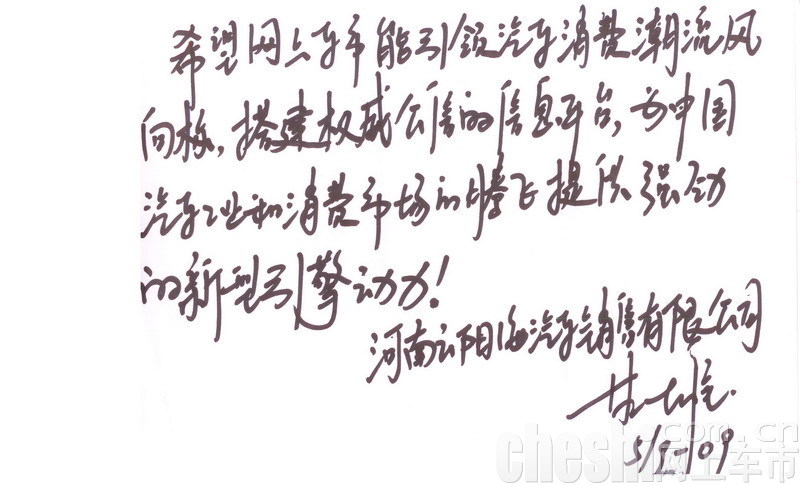 希望网上车市能引领汽车消费潮流风
向标,搭建权威公信的信息平台,为中国
汽车工业和消费市场的腾飞提供强劲
的新型引擎动力!
河南云阳海汽车销售有限公司
5/5-09
cheshi.com.cn
网上车市